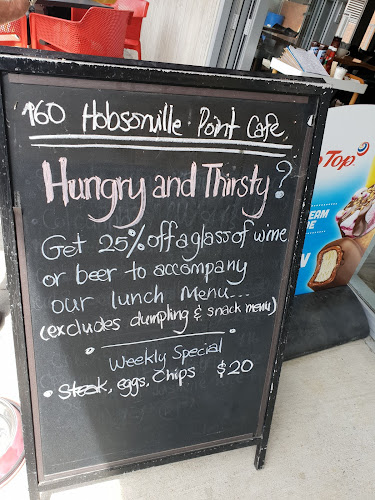 160 Hobsonville Point Cafe,
Hungry and Thirsty?
Get 25% off a glass of wine
or beer to accompany
our lunch Menu...
(excludes dumpling & snack menu)
Weekly Special
• Steak, eggs, Chips $20
Top